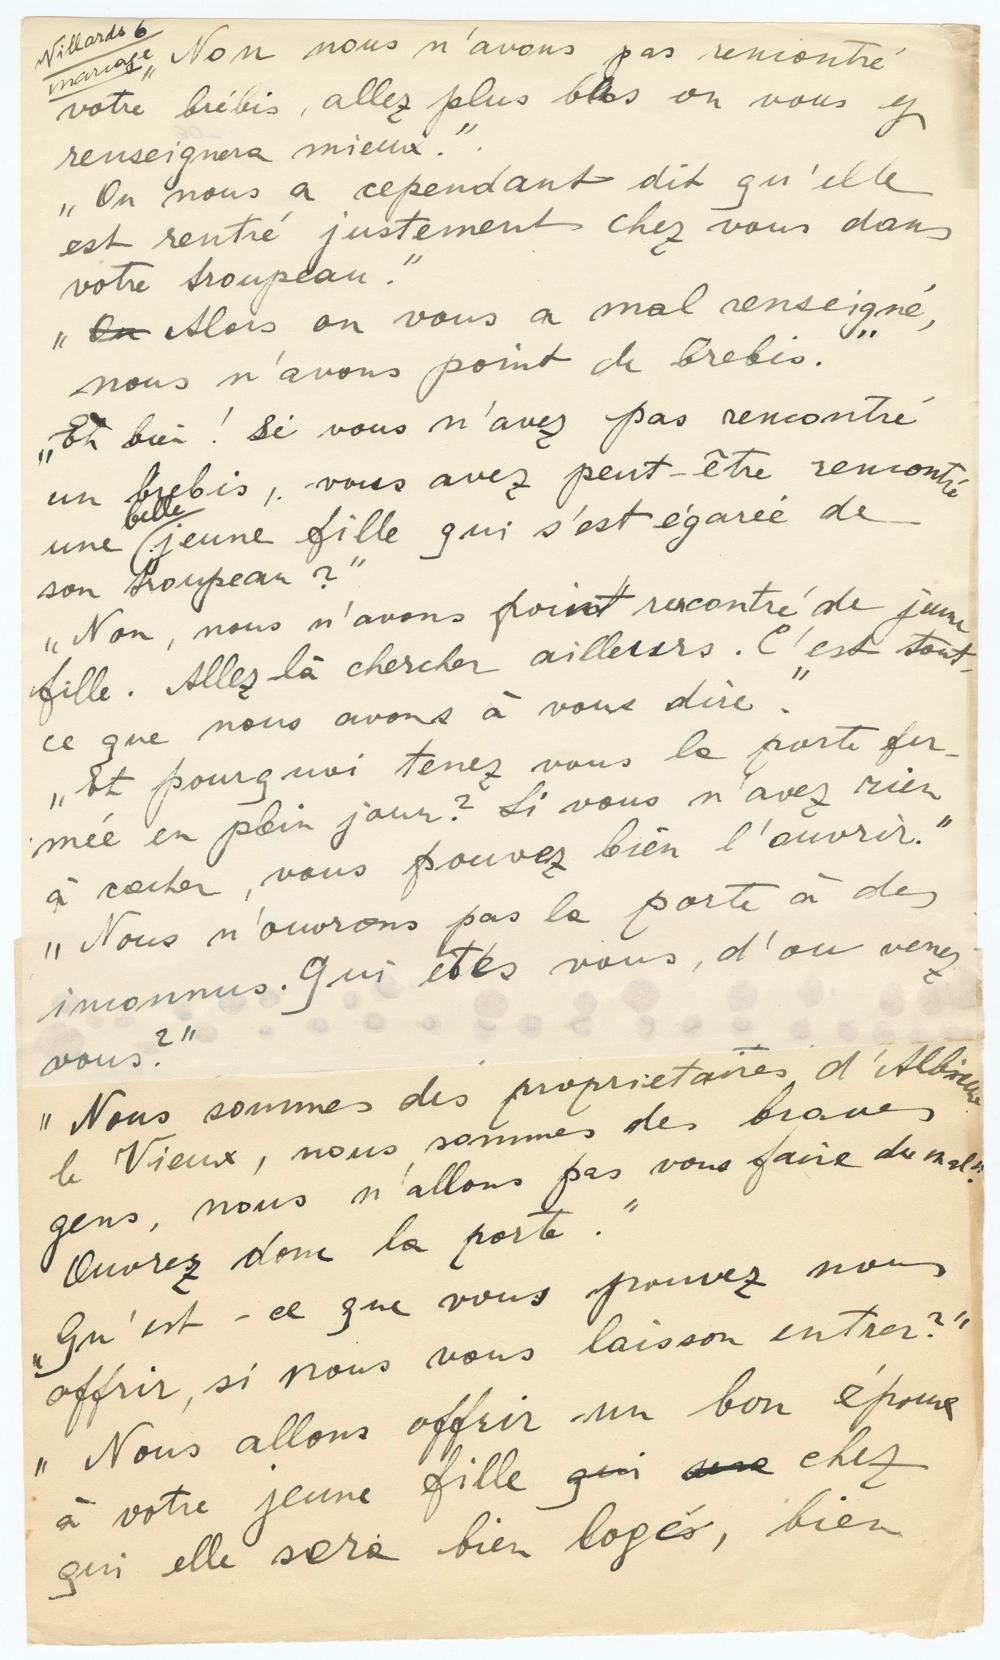 Villards 6
mariage
" Non nous n'avons pas rencontré
votre brébis, allez plus bas on vous y
renseignera mieux.".
" On nous a cependant dit qu'elle
est rentré justement chez vous dans
votre troupeau."
" On Alors on vous a mal renseigné,
nous n'avons point de brebis."
" Eh bien ! Si vous n'avez pas rencontré
un brebis, vous avez peut-être rencontré
belle
une jeune fille qui s'est égareé de
son troupeau ?"
" Non, nous n'avons point rencontré de jeune
fille. Allez là chercher ailleurs. C'est tout
ce que nous avons à vous dire."
" Et pourquoi tenez vous la porte fer-
meé en plein jour? Si vous n'avez rien
à cacher, vous pouvez bien l'ouvrir."
" Nous n'ouvrons pas la porte à des
inconnus. Qui etés vous, d'ou venez
vous?"
" Nous sommes des proprietaires d'Albiez
le Vieux, nous sommes des braves
gens, nous n'allons pas vous faire du mal".
Ouvrez donc la porte."
" Qu'est-ce que vous pouvez nous
offrir, si nous vous laisson entrer?"
" Nous allons offrir un bon époux
à votre jeune fille qui sera chez
qui elle sera bien logés, bien